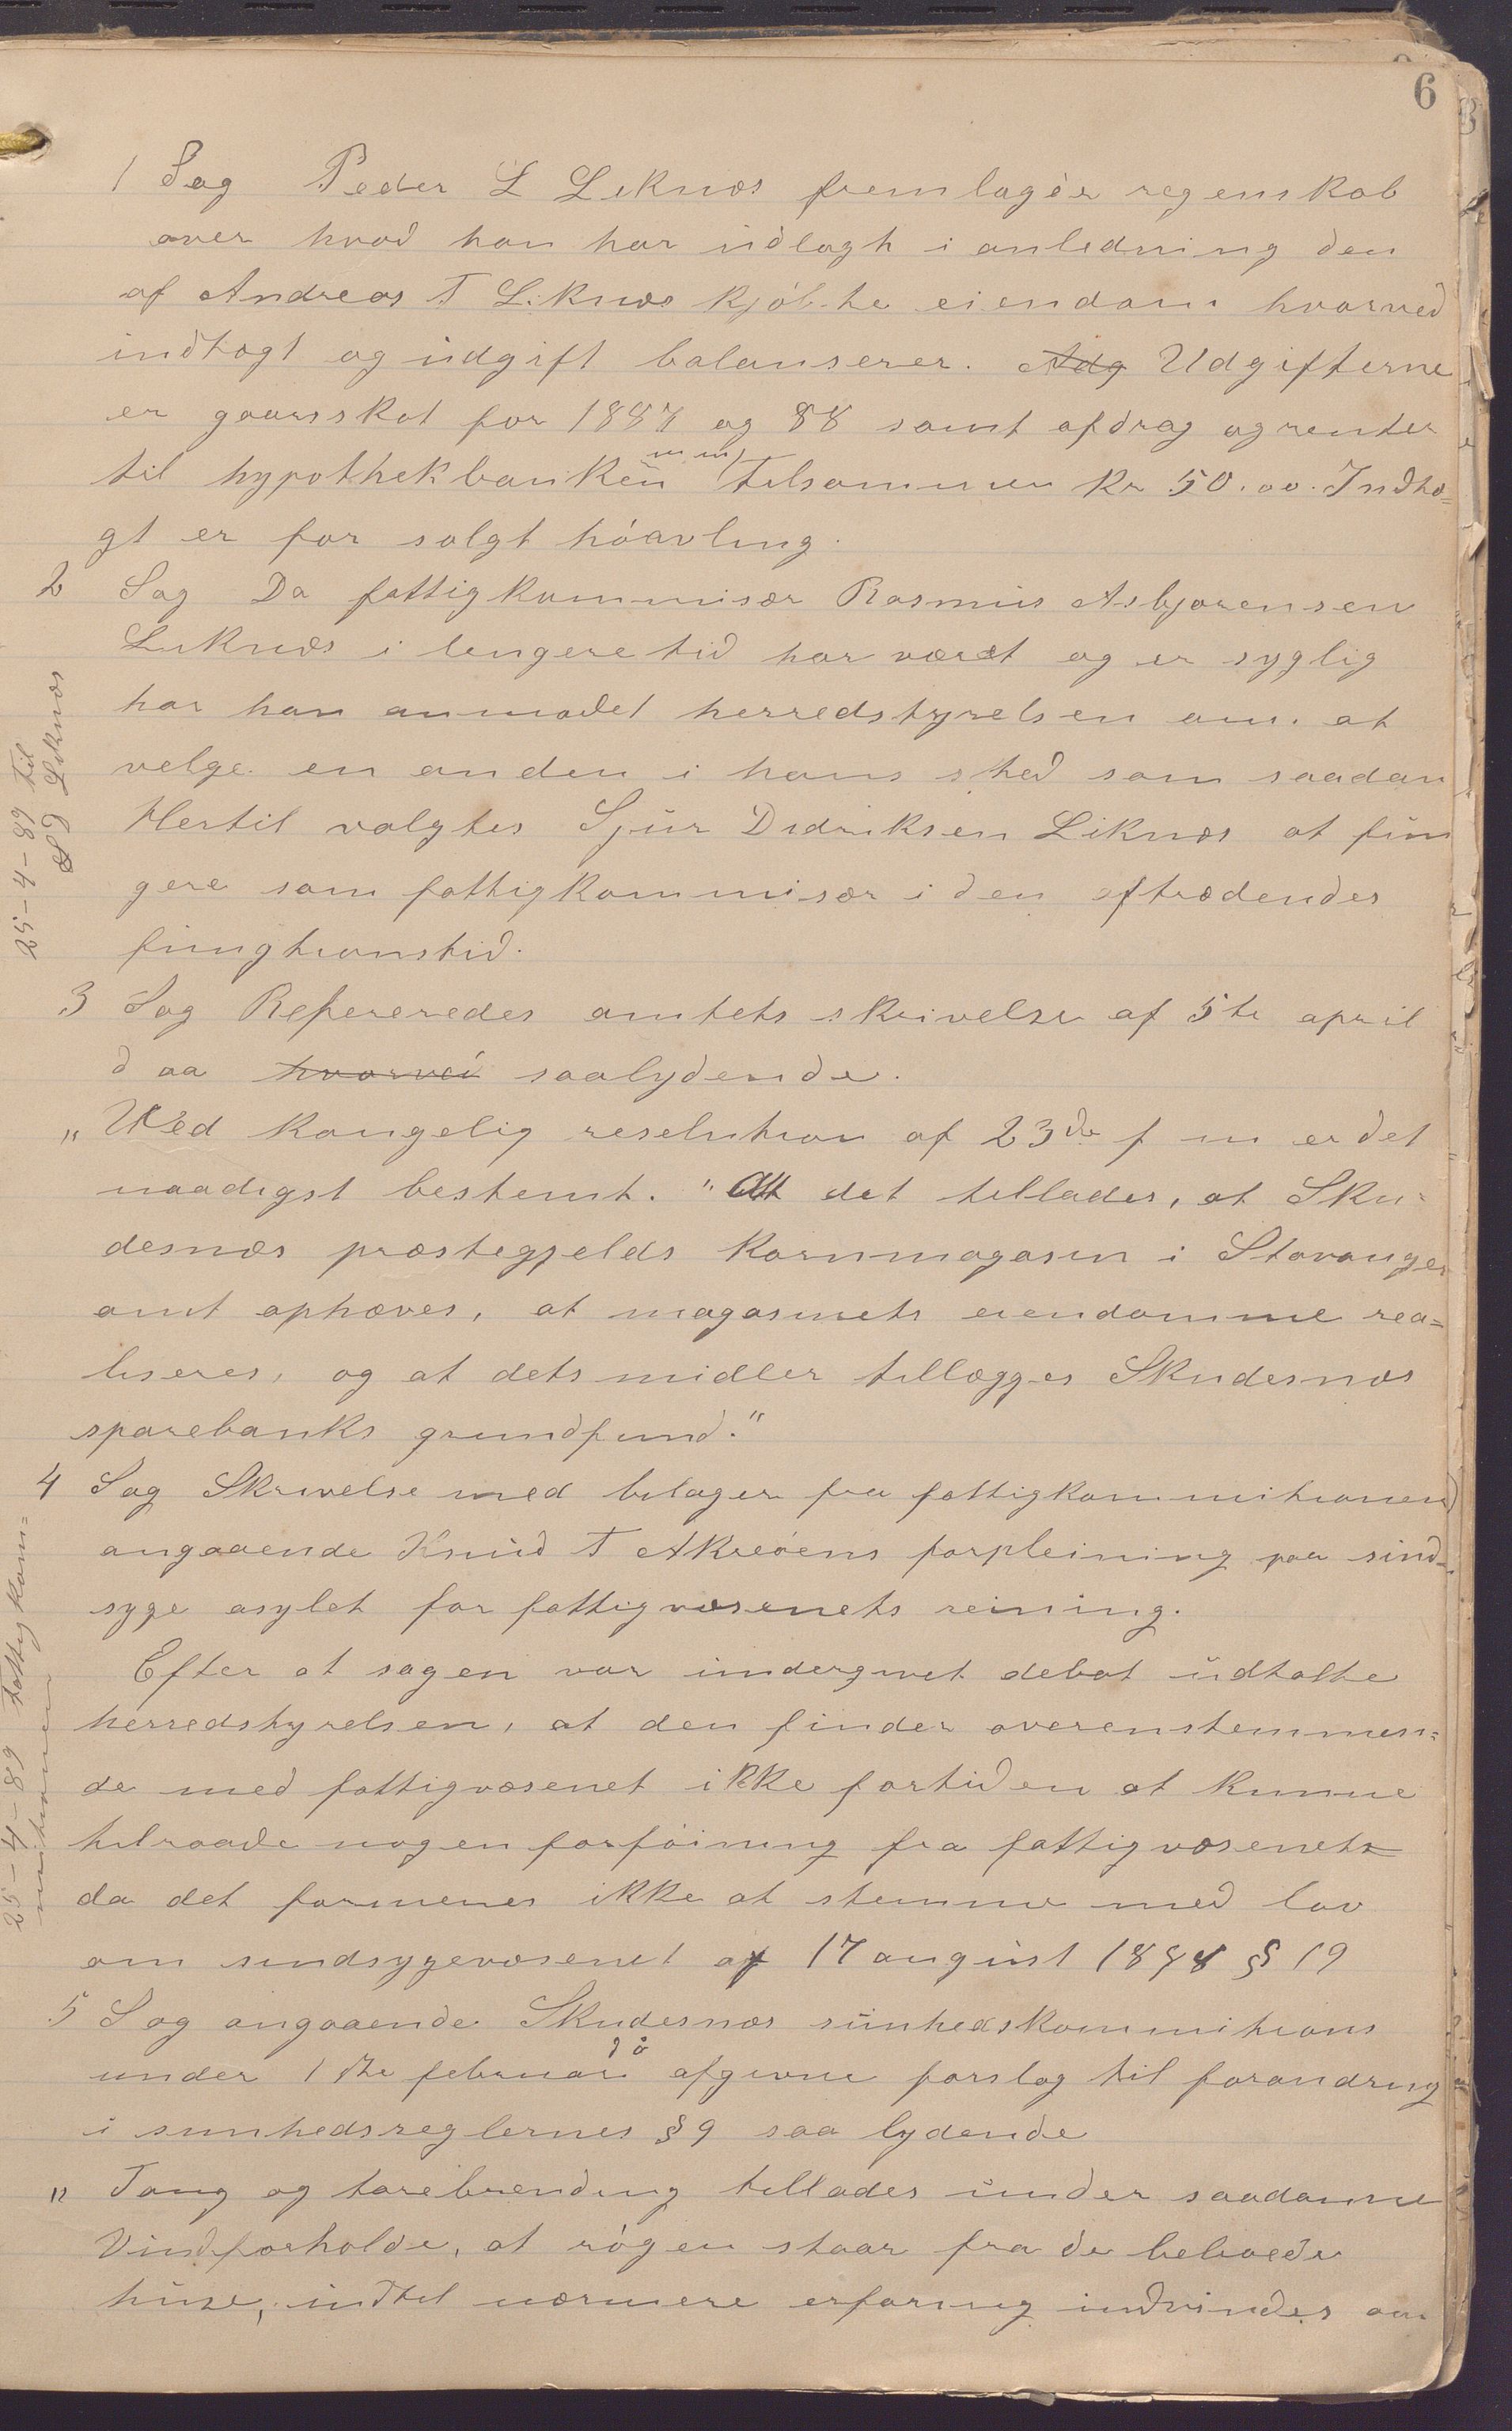 6
1 Sag Peder L Liknæs fremlagde regenskab
over hvad han har udlagh i anledning den
af Andreas T Liknæs kjøbte eiendom hvorved
indtægt og udgift balanserer. Udg Udgifterne
er gaarsskat for 1887 og 88 samt afdrag og renter
til hypothekbanken m m, tilsammen kr 50.00. Indtæ=
gt er for solgt høavling.
2 Sag Da fattigkommisær Rasmus Asbjørensen
Liknæs i lengere tid har været og er syglig
har han anmodet herredstyrelsen om. at
velge en anden i hans sted som saadan
Hertil valgtes Sjur Didriksen Liknæs at fun
gere som fattigkommisær i den aftrædendes
fungtionstid.
25-4-89 til
S D Liknæs
3 Sag Refereredes amtets skrivelse af 5te april
d aa hvorved saalydende.
„ Ved kongelig reselution af 23de f m er det
naadigst bestemt. "At det tillades, at Sku=
desnæs præstegjelds kornmagasin i Stavanger
amt ophæves, at magasinets eiendomme rea=
liseres, og at dets midler tillægges Skudesnæs
sparebanks grundfund."
4 Sag Skrivelse med bilager fra fattigkommitionen
angaaende Knud T Akreøens forpleining paa sind=
syge asylet for fattigvæsenets reining.
Efter at sagen var undergivet debat udtalte
herredstyrelsen, at den finder overenstemmen=
de med fattigvæsenet ikke fortiden at kunne
tilraade nogen forføining fra fattigvæsenets
da det formenes ikke at stemme med lov
om sindsygevæsenet af 17 august 1848 § 19
25-4-89 fattigkom=
mitionen
5 Sag angaaende Skudesnæs sunhedskommitions
under 1ste februar d å afgivne forslag til forandring
i sunhedsreglernes § 9 saa lydende
„ Tang og tarebrending tillades under saadanne
Vindforholde, at røgen staar fra de beboede
huse, indtil nærmere erfaring indvindes om